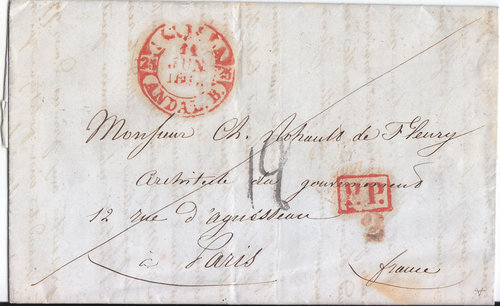 11
JUN
ANDAL. B.
Monsieur Ch. Rohault de Fleury
Architecte du gouvernement
19
P.P.
12 rue d'aguesseau
2
à Paris
france